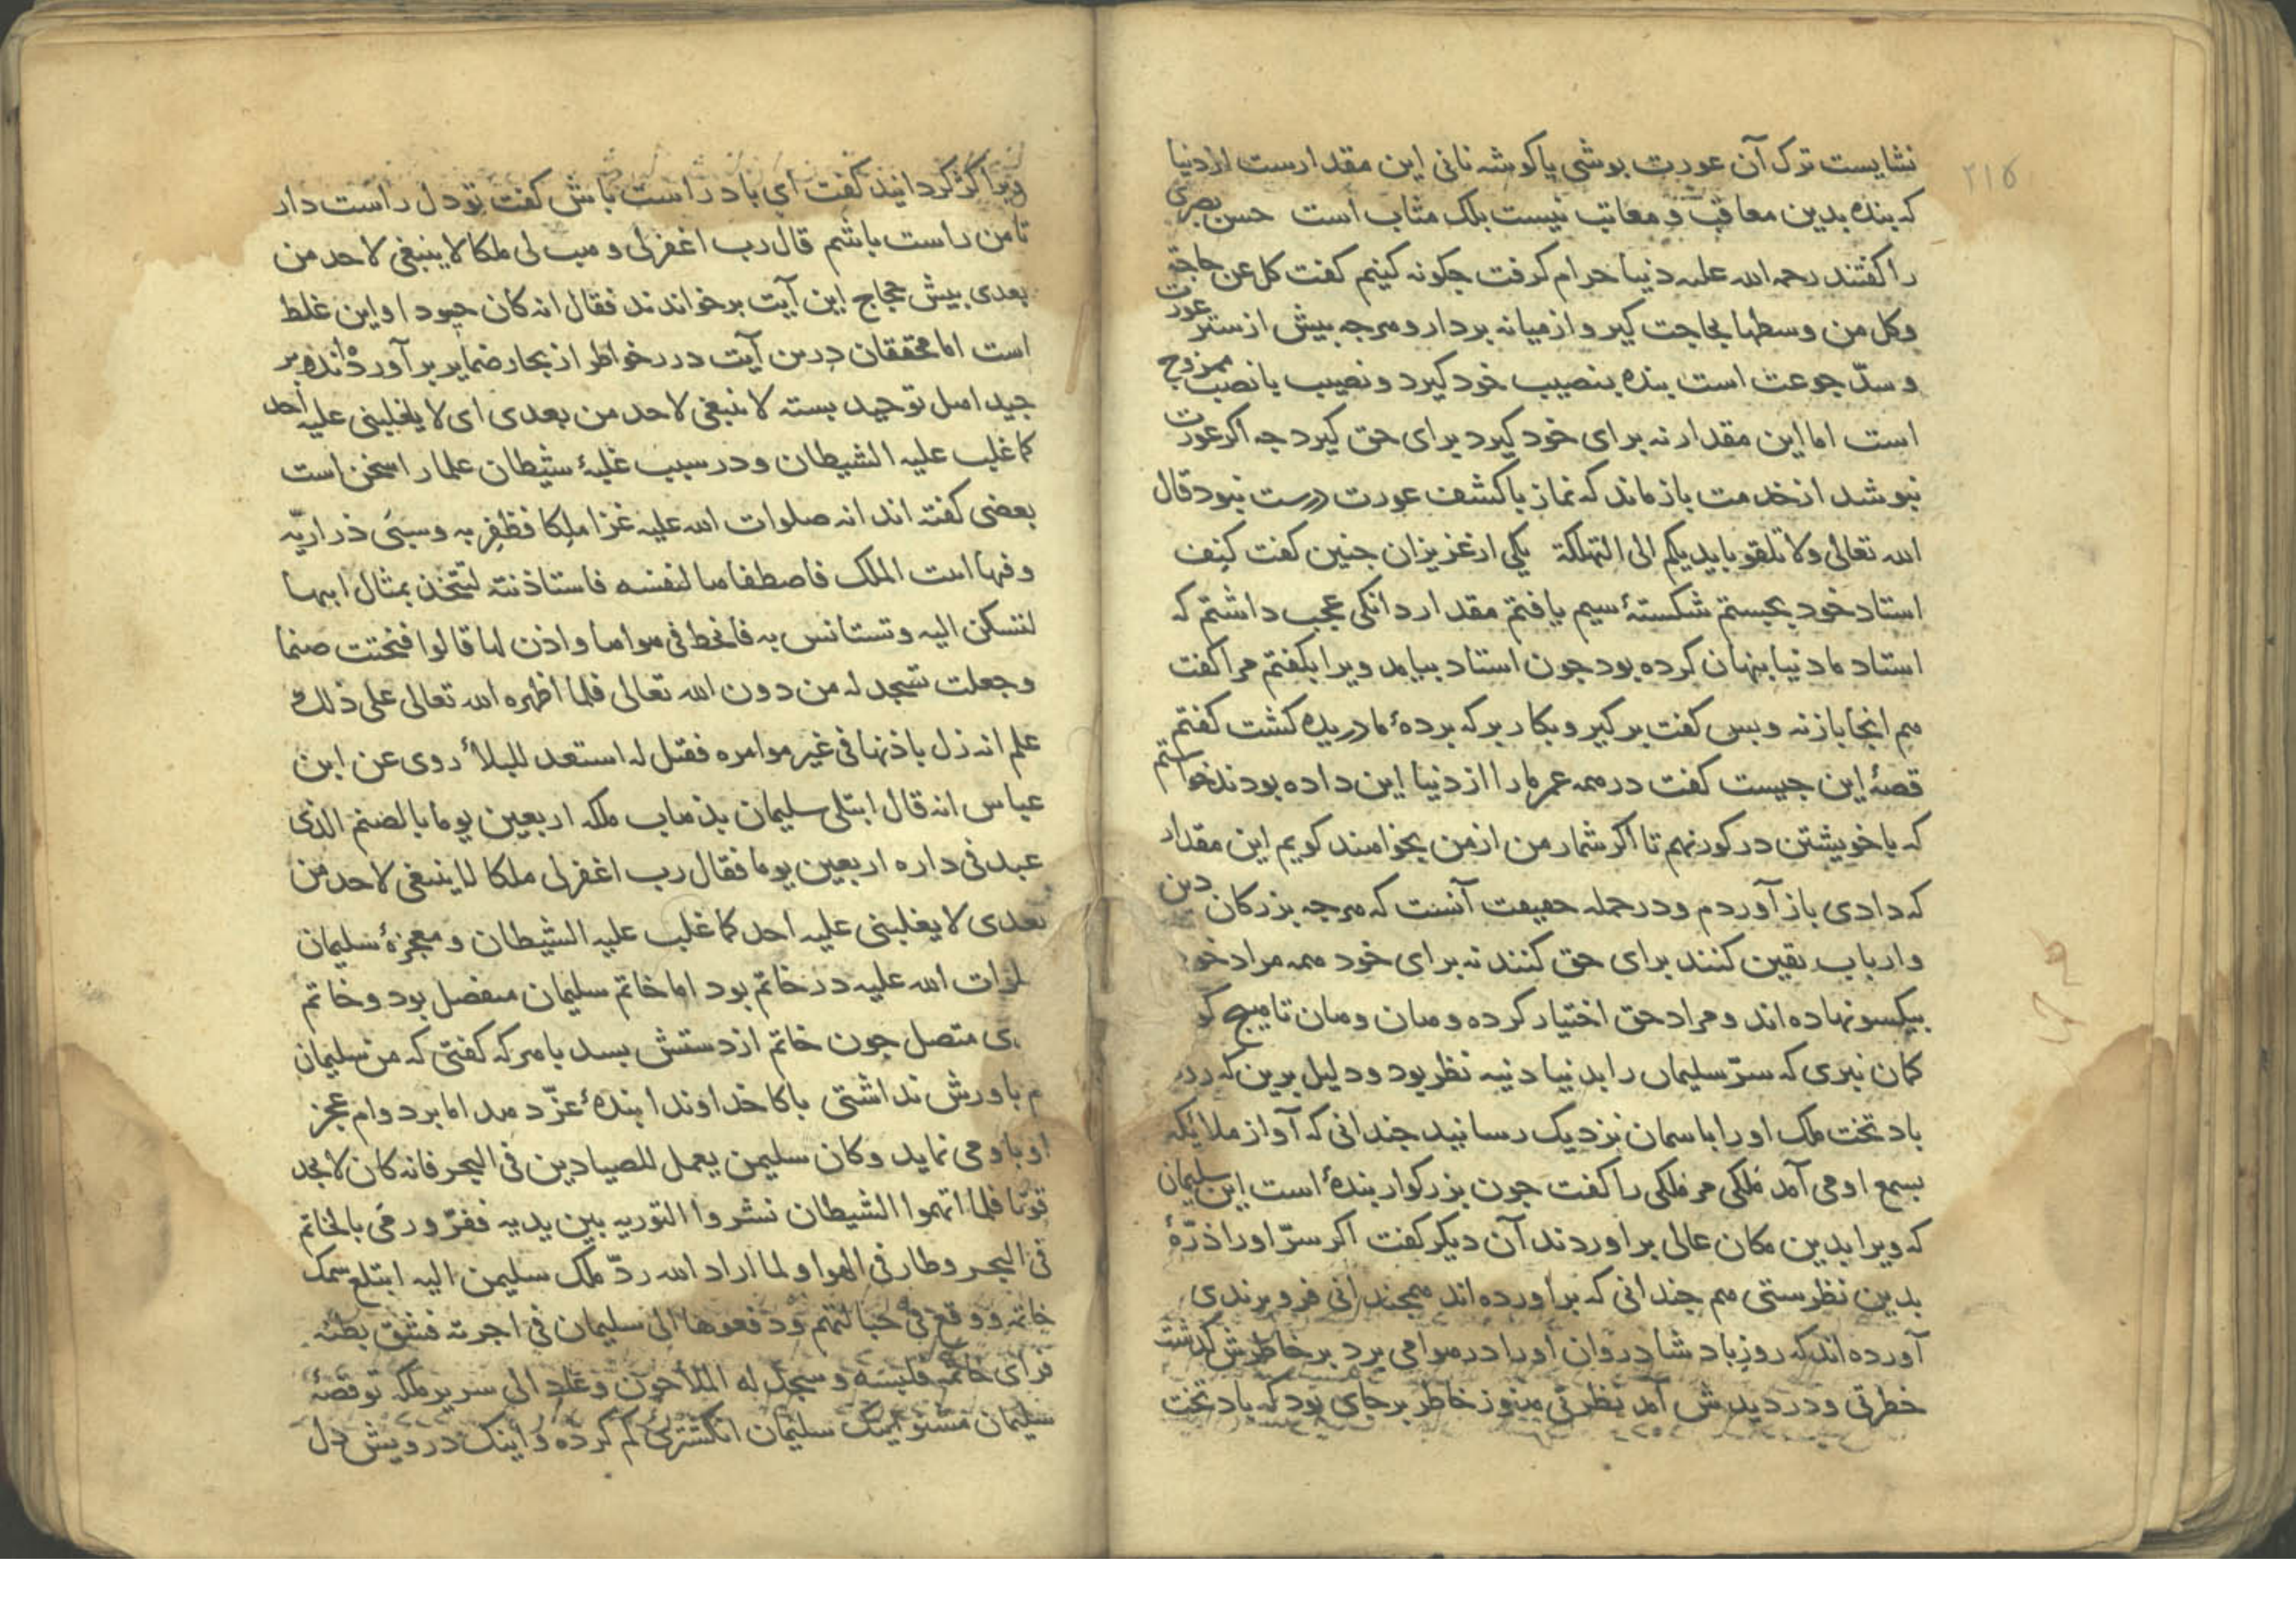 ۲۱۵
نشایست ترک آن عورت پوشی یا کوشه نانی این مقدارست از دنیا
که بنده بدین معاقب و معاتب نیست بلک مثاب است حسن بصری
را کفتند رحمه الله علیه دنیا حرام کرفت جکونه کنیم کفت کل عن حاجة
وکل من وسطها بحاجت کیر و از میانه بردار و هرجه بیش از ستر عورت
و سدّ جوعت است بنده بنصیب خود کیرد و نصیب با نصب ممزوج
است اما این مقدار نه برای خود کیرد برای حق کیرد جه اکر عورت
نپوشد از خدمت باز ماند که نماز با کشف عورت درست نبود قال
الله تعالی ولا تلقوا بایدیکم الی التهلکة یکی از عزیزان جنین کفت کنف
استاد خود بجستم شکستهٔ سیم یافتم مقدار دانکی عجب داشتم که
استاد ما دنیا پنهان کرده بود جون استاد بیامد ویرا بکفتم مرا کفت
هم انجا باز نه و بس کفت برکیر و بکار بر که بردهٔ ما دریده کشت کفتم
قصهٔ این جیست کفت در همه عمر ما را از دنیا این داده بودند خواستم
که با خویشتن در کور نهم تا اکر شمار من از من بخواهند کویم این مقدار
که دادی باز آوردم و در جمله حقیقت آنست که هرجه بزرکان دین
و ارباب یقین کنند برای حق کنند نه برای خود همه مراد خو
بیکسو نهاده اند و مراد حق اختیار کرده و هان و هان تا هیج کو
کمان نبری که سرّ سلیمان را بدنیا دنیه نظر بود و دلیل برین که رو
باد تخت ملک او را باسمان نزدیک رسانید جندانی که آواز ملایکه
بسمع او می آمد فلکی مر فلکی را کفت جون بزرکوار بندهٔ است این سلیمان
که ویرا بدین مکان عالی براوردند آن دیکر کفت اکر سرّ او را ذرّهٔ
بدین نظرستی هم جندانی که براورده اند همجندانی فرو برندی
آورده اند که روز باد شادروان او را در هوا می برد بر خاطرش کذشت
خطرتی و در دیدش آمد نظرتی هنوز خاطر برجای بود که باد تخت
ویرا کژ کردانید کفت ای باد راست باش کفت تو دل راست دار
تا من راست باشم قال رب اغفرلی و هب لی ملکا لا ینبغی لاحد من
بعدی بیش حجاج این آیت برخواندند فقال انه کان حسودا و این غلط
است اما محققان درین آیت درر خواطر از بحار ضمایر برآورده اند و بر
جید اصل توحید بسته لا ینبغی لاحد من بعدی ای لا یغلبنی علیه احد
کما غلب علیه الشیطان و در سبب غلبهٔ شیطان علما را سخن است
بعضی کفته اند انه صلوات الله علیه غزا ملکا فظفر به و سبی ذراریّه
و فیها ابنت الملک فاصطفاها لنفسه فاستاذنته لتتخذ بمثال ابیها
لتسکن الیه و تستانس به فانحط فی هواها و اذن لها قالوا فنحتت صنما
و جعلت تسجد له من دون الله تعالی فلما اظهره الله تعالی علی ذلک
علم انه زل باذنها فی غیر موامره فقیل له استعد للبلاء روی عن ابن
عباس انه قال ابتلی سلیمان بذهاب ملکه اربعین یوما بالصنم الذی
عبد فی داره اربعین یوما فقال رب اغفرلی ملکا لا ینبغی لاحد من
بعدی لا یغلبنی علیه احد کما غلب علیه الشیطان و معجزهٔ سلیمان
لوات الله علیه در خاتم بود اما خاتم سلیمان منفصل بود و خاتم
ی متصل جون خاتم از دستش بسد با هرکه کفتی که من سلیمان
م باورش نداشتی پاکا خداوندا بندهٔ عزّ دهد اما بر دوام عجز
او باو می نماید و کان سلیمن یعمل للصیادین فی البحر فانه کان لا یجد
قوتا فلما اتهموا الشیطان نشروا التوریه بین یدیه ففرّ و رمی بالخاتم
فی البحر و طار فی الهوا و لما اراد الله ردّ ملک سلیمن الیه ابتلع سمک
خاتمه و وقع فی حبالتهم و دفعوها الی سلیمان فی اجرته فشق بطنه
فرای خاتمه فلبسه و سجد له الملاحون و عاد الی سریر ملکه تو قصهٔ
سلیمان مشنو اینک سلیمان انکشتری کم کرده و اینک درویش دل